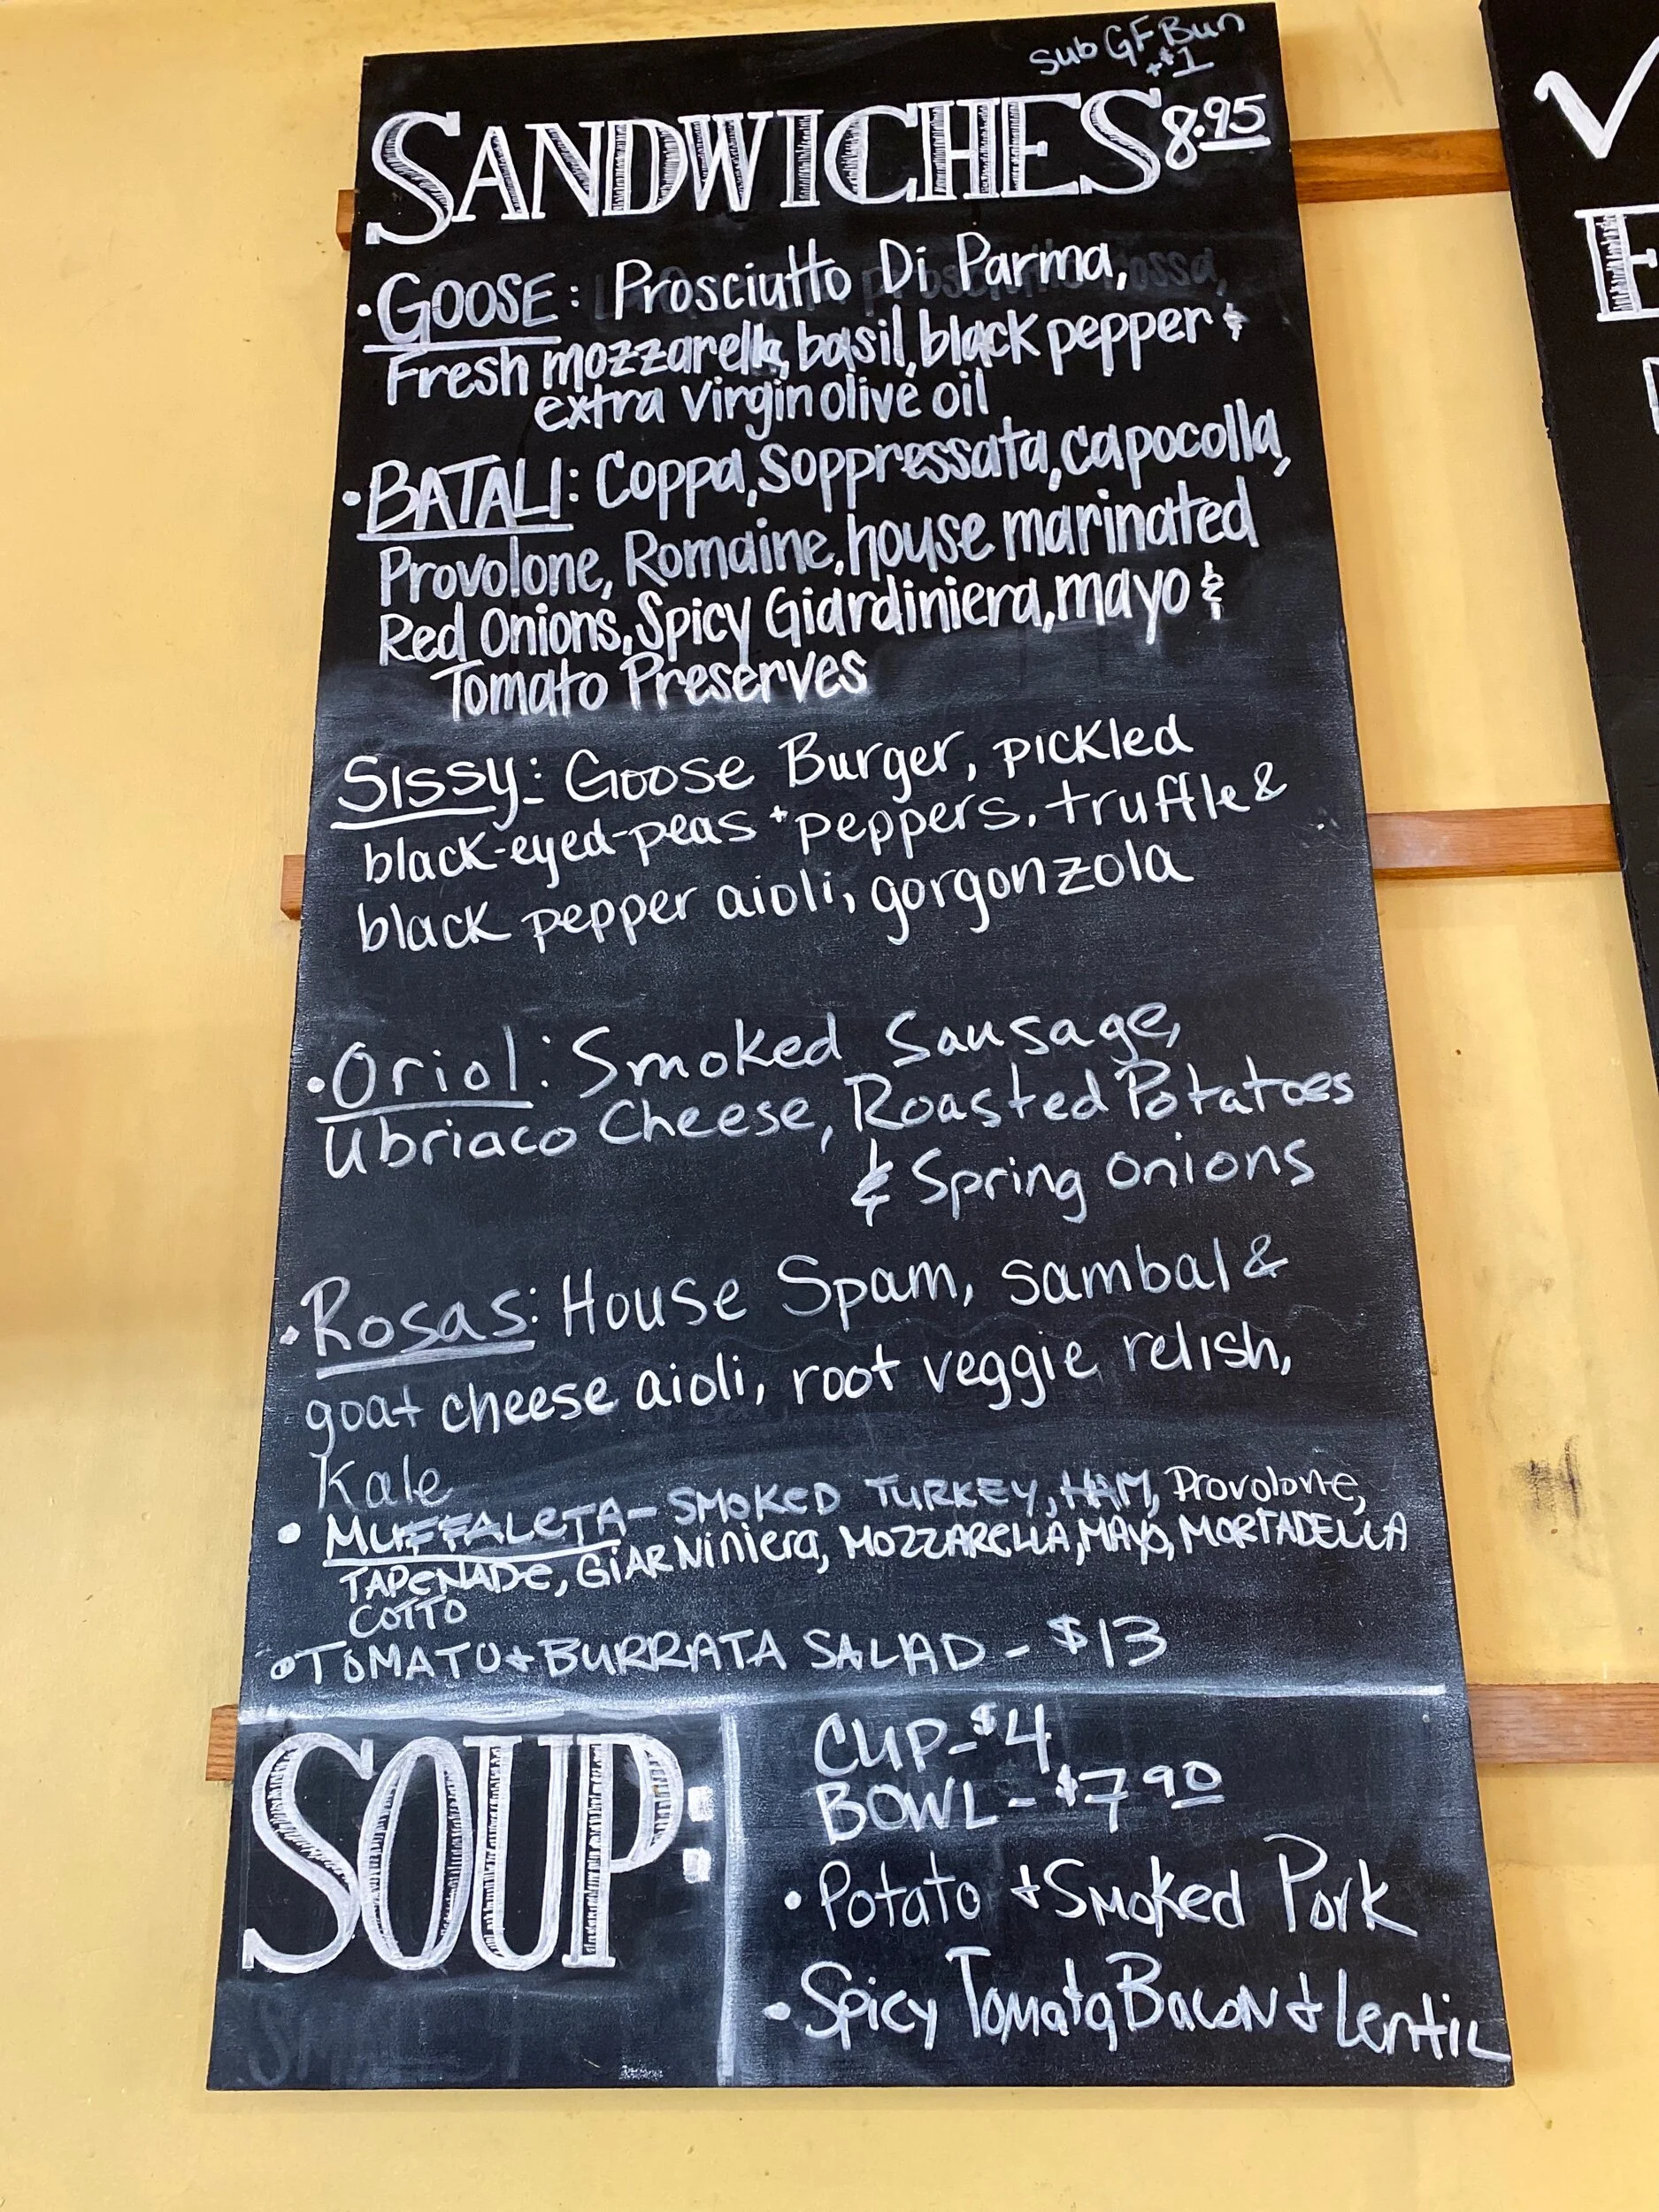 Sub GF Bun
+$1
SANDWICHES 8.95
• GOOSE: Prosciutto Di Parma,
Fresh mozzarella, basil, black pepper &
extra virgin olive oil
• BATALI: Coppa, Soppressata, capocolla,
Provolone, Romaine, house marinated
Red Onions, Spicy Giardiniera, mayo &
Tomato Preserves
Sissy: Goose Burger, pickled
black-eyed-peas + peppers, truffle &
black pepper aioli, gorgonzola
• Oriol: Smoked Sausage,
Ubriaco Cheese, Roasted Potatoes
& Spring Onions
• Rosas: House Spam, sambal &
goat cheese aioli, root veggie relish,
Kale
• MUFFALETA - SMOKED TURKEY, HAM, Provolone,
TAPENADE, GIARNiniera, MOZZARELLA, MAYO, MORTADELLA
COTTO
• TOMATO + BURRATA SALAD - $13
SOUP:
CUP - $4
BOWL - $7 90
• Potato + Smoked Pork
• Spicy Tomato, Bacon + Lentil